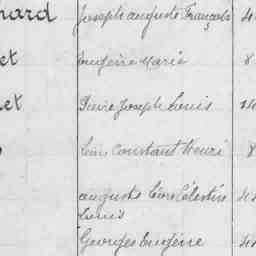 nard Joseph auguste François 4
et Eugénie Marie 8
et Pierre Joseph Louis 14
Léon Constant Henri 8
auguste Célestin 4
Louis
Georges Eugène 4